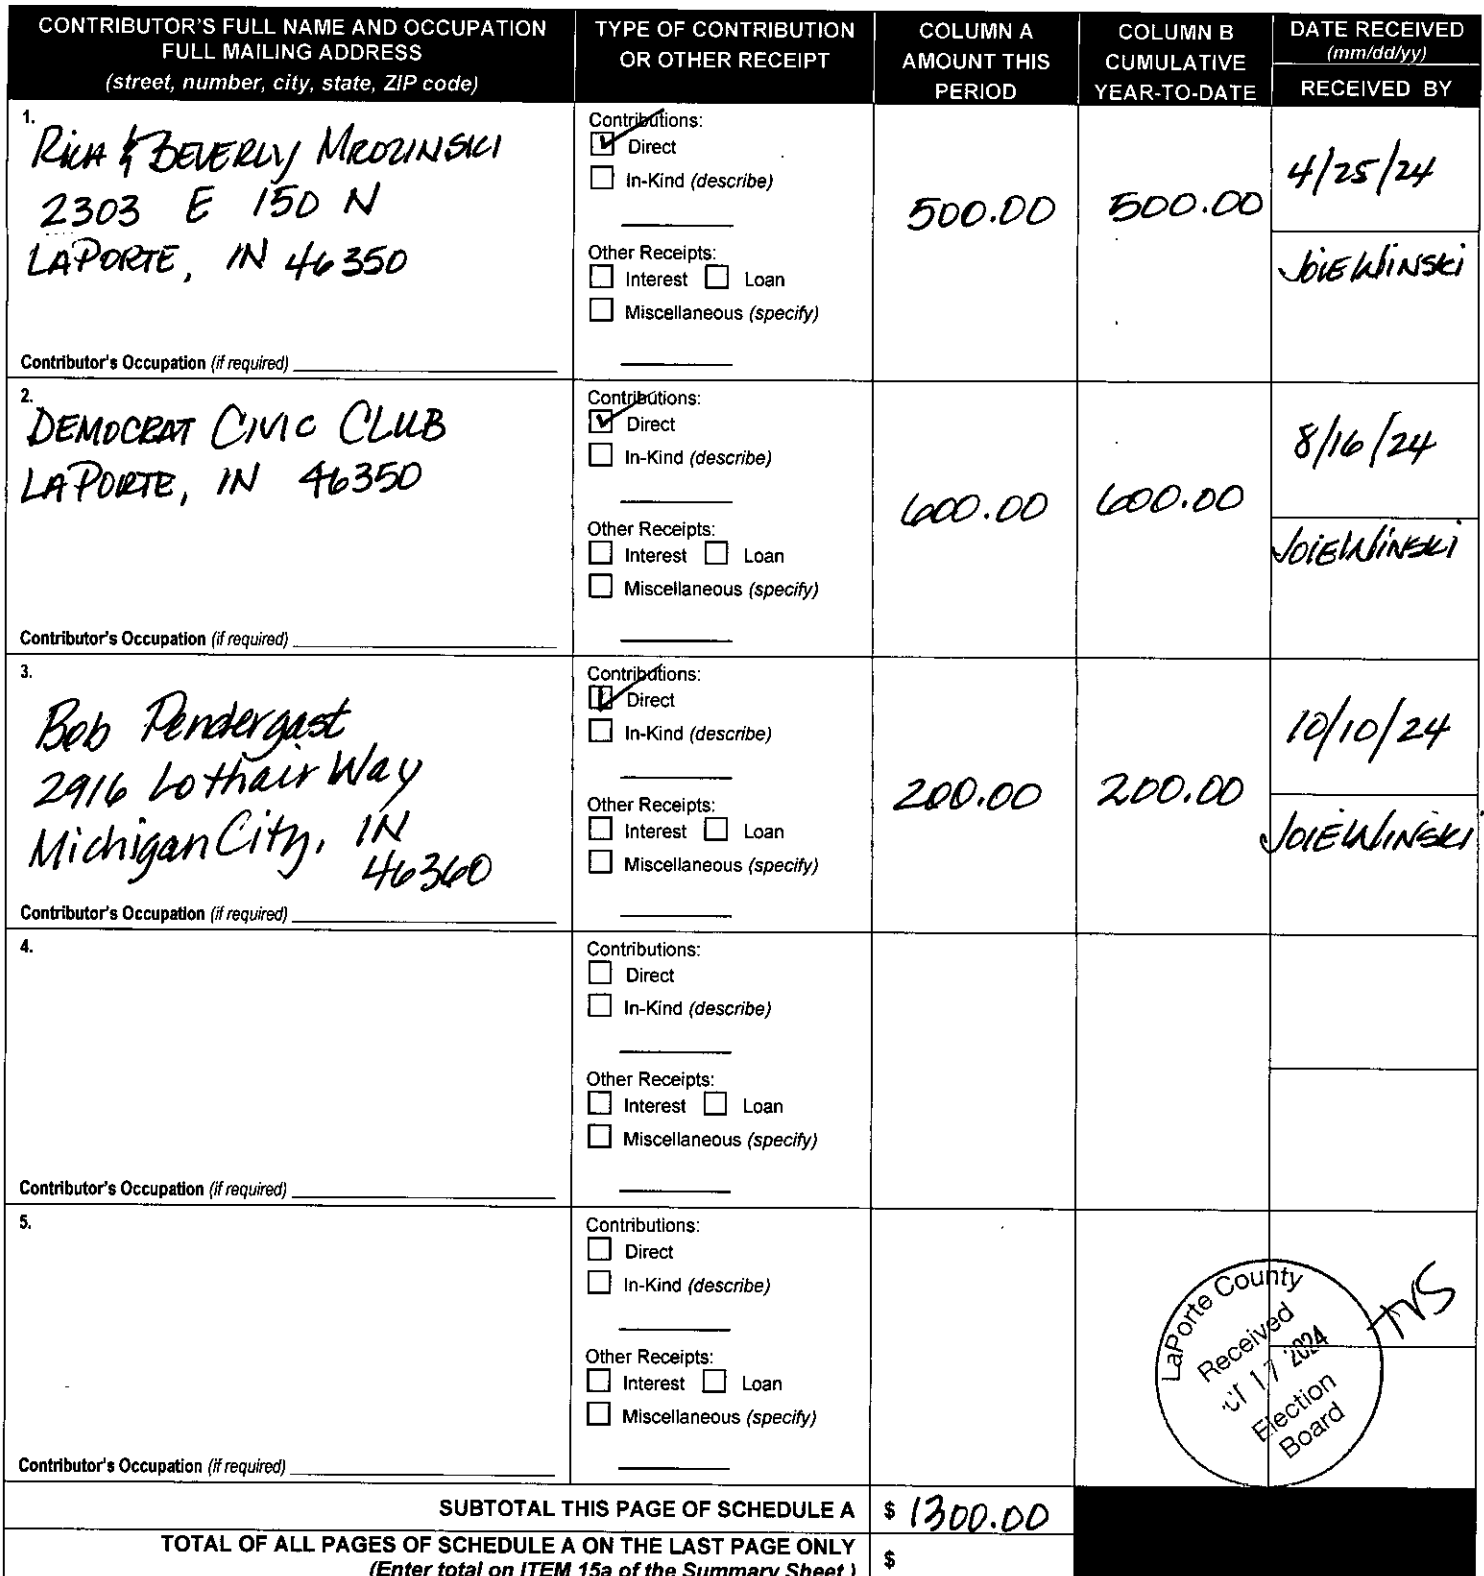 CONTRIBUTOR'S FULL NAME AND OCCUPATION
FULL MAILING ADDRESS
(street, number, city, state, ZIP code)
TYPE OF CONTRIBUTION
OR OTHER RECEIPT
COLUMN A
AMOUNT THIS
PERIOD
COLUMN B
CUMULATIVE
YEAR-TO-DATE
DATE RECEIVED
(mm/dd/yy)
RECEIVED BY
1.
RICH & BEVERLY MROZINSKI
2303 E 150 N
LAPORTE, IN 46350
Contributor's Occupation (if required)
Contributions:
Direct
In-Kind (describe)
Other Receipts:
Interest Loan
Miscellaneous (specify)
500.00
500.00
4/25/24
JOIE WINSKI
2.
DEMOCRAT CIVIC CLUB
LAPORTE, IN 46350
Contributor's Occupation (if required)
Contributions:
Direct
In-Kind (describe)
Other Receipts:
Interest Loan
Miscellaneous (specify)
600.00
600.00
8/16/24
JOIE WINSKI
3.
Bob Pendergast
2916 Lothair Way
Michigan City, IN
46360
Contributor's Occupation (if required)
Contributions:
Direct
In-Kind (describe)
Other Receipts:
Interest Loan
Miscellaneous (specify)
200.00
200.00
10/10/24
JOIE WINSKI
4.
Contributor's Occupation (if required)
Contributions:
Direct
In-Kind (describe)
Other Receipts:
Interest Loan
Miscellaneous (specify)
5.
Contributor's Occupation (if required)
Contributions:
Direct
In-Kind (describe)
Other Receipts:
Interest Loan
Miscellaneous (specify)
LaPorte County
Received
17 2024
Election
Board
SUBTOTAL THIS PAGE OF SCHEDULE A $ 1300.00
TOTAL OF ALL PAGES OF SCHEDULE A ON THE LAST PAGE ONLY $
(Enter total on ITEM 15a of the Summary Sheet.)